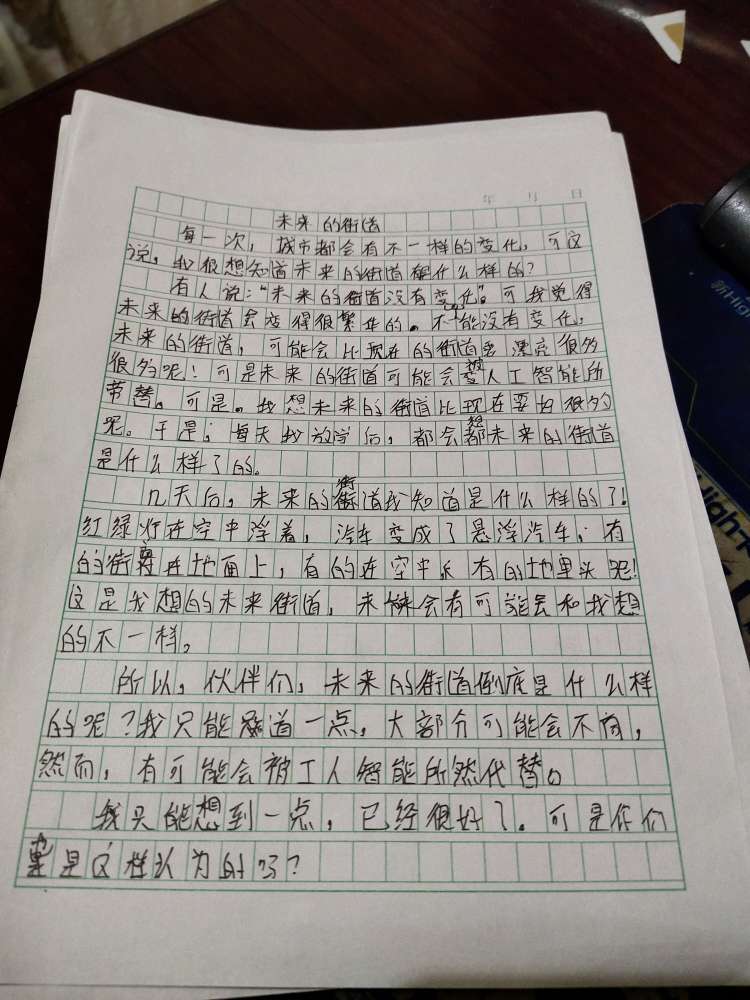 年 月 日
未来的街道
每一次，城市都会有不一样的变化，可这
说，我很想知道未来的街道是什么样的？
有人说："未来的街道没有变化。"可我觉得
未来的街道会变得很繁华的。不可能没有变化，
未来的街道，可能会比现在的街道要漂亮很多
很多呢！可是未来的街道可能会被人工智能所
带替。可是。我想未来的街道比现在要好很多
呢。于是；每天我放学后，都会想未来的街道
是什么样了的。
几天后，未来的街道我知道是什么样的了！
红绿灯在空中浮着，汽车变成了悬浮汽车；有
的街道在地面上，有的在空中，有的地里头呢！
这是我想的未来街道，未来会有可能会和我想
的不一样。
所以，伙伴们，未来的街道倒底是什么样
的呢？我只能知道一点，大部分可能会不同，
然而，有可能会被工人智能所然代替。
我只能想到一点，已经很好了。可是你们
也是这样认为的吗？
新High
High